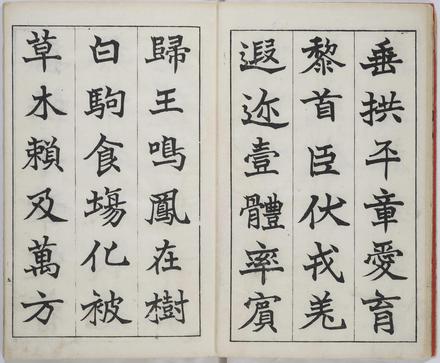 垂拱平章愛育
黎首臣伏戎羌
遐迩壹體率賓
歸王鳴鳳在樹
白駒食場化被
草木賴及萬方